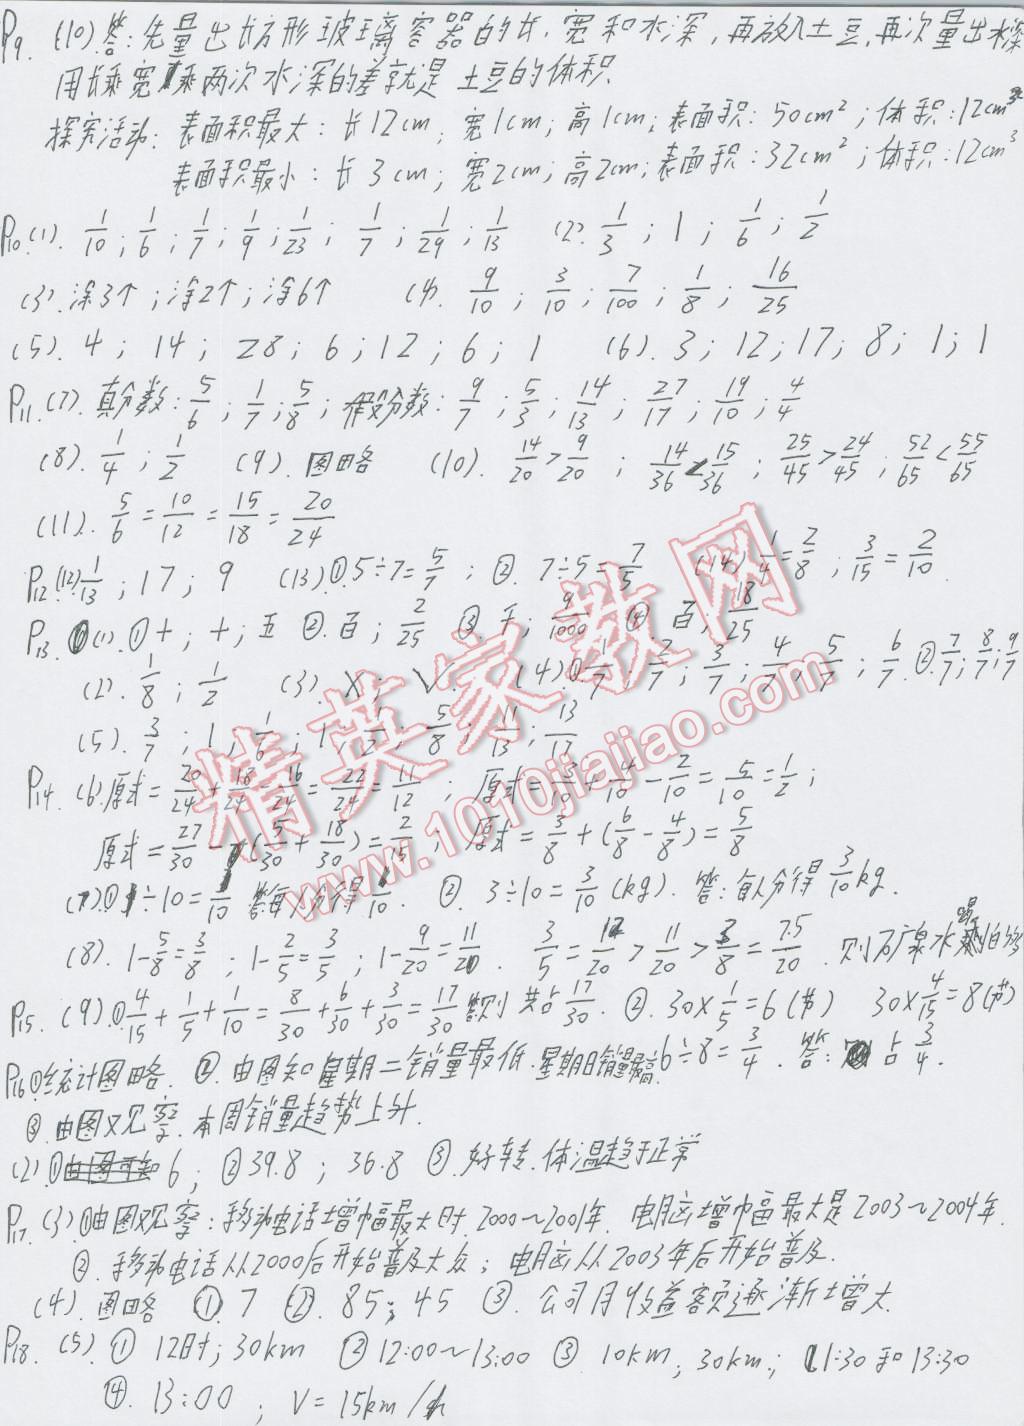 P9. (10) 答:先量出长方形玻璃容器的长、宽和水深,再放入土豆,再次量出水深
用长乘宽乘两次水深的差就是土豆的体积.
探究活动:表面积最大:长12cm;宽1cm;高1cm;表面积:50cm²;体积:12cm³
表面积最小:长3cm;宽2cm;高2cm;表面积:32cm²;体积:12cm³
P10.(1). 1/10;1/6;1/7;1/9;1/23;1/7;1/29;1/13 (2). 1/3;1;1/6;1/2
(3).涂3个;涂2个;涂6个 (4). 9/10;3/10;7/100;1/8;16/25
(5). 4;14;28;6;12;6;1 (6). 3;12;17;8;1;1
P11.(7). 真分数:5/6;1/7;5/8;假分数:9/7;5/3;14/13;27/17;19/10;4/4
(8). 1/4;1/2 (9).图略 (10). 14/20>9/20;14/36<15/36;25/45>24/45;52/65<55/65
(11). 5/6=10/12=15/18=20/24
P12.(12) 1/13;17;9 (13)①.5÷7=5/7;②. 7÷5=7/5 (14) 1/4=2/8;3/15=2/10.
P13. (1).①十;十;五 ②.百;2/25 ③千;9/1000 ④百;18/25
(2). 1/8;1/2 (3). X;√. (4).① 1/7;2/7;3/7;4/7;5/7;6/7.②.7/7;8/7;9/7
(5). 3/7;1;1/6;1;1/2;5/8;11/13;13/17
P14. (6).原式=20/24+18/24-16/24=22/24=11/12;原式=3/10+4/10-2/10=5/10=1/2;
原式=27/30-(5/30+18/30)=2/15;原式=3/8+(6/8-4/8)=5/8
(7).①1÷10=1/10 答:每人分得1/10. ②. 3÷10=3/10(kg). 答:每人分得3/10kg.
(8). 1-5/8=3/8;1-2/5=3/5;1-9/20=11/20. 3/5=12/20>11/20>3/8=7.5/20. 则矿泉水喝的多
P15. (9).①4/15+1/5+1/10=8/30+6/30+3/30=17/30 答:则共占17/30. ②.30×1/5=6(节) 30×4/15=8(节)
P16①统计图略. ②.由图知星期二销量最低.星期日销量最高6÷8=3/4. 答:占3/4.
③.由图观察.本周销量趋势上升.
(2)①6;②39.8;36.8 ③.好转.体温趋于正常
P17.(3)①由图观察:移动电话增幅最大时.2000~2001年. 电脑增幅最大是2003~2004年.
②.移动电话从2000后开始普及大众;电脑从2003年后开始普及.
(4).图略 ①.7 ②.85;45 ③.公司月收益额逐渐增大.
P18.(5).①12时;30km ②12:00~13:00 ③.10km;30km;11:30和13:30
④.13:00;V=15km/h
精英家教网
www.1010jiajiao.com